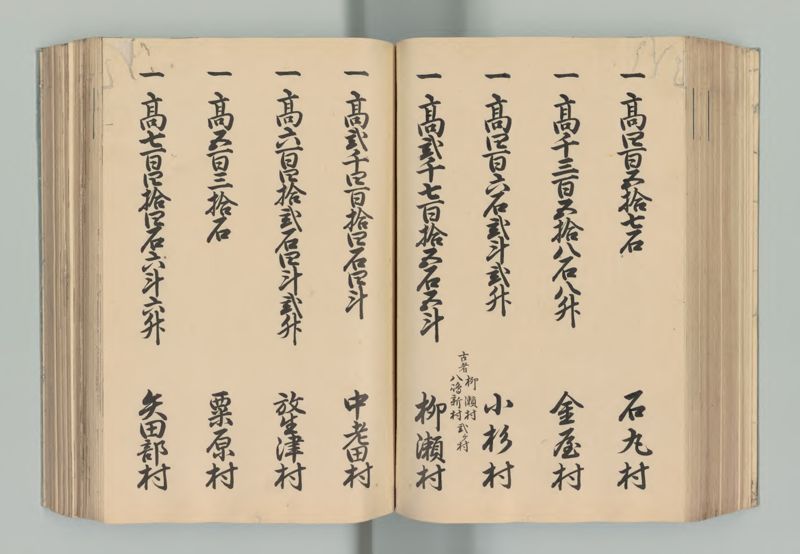 一 高四百五拾七石 石丸村
一 高千三百五拾八石八升 金屋村
一 高四百六石弐斗弐升 小杉村
古者 柳瀬村
八嶋新村 弐ケ村
一 高弐千七百拾五石五斗 柳瀬村
一 高弐千四百拾四石四斗 中老田村
一 高六百四拾弐石四斗弐升 放生津村
一 高五百三拾石 粟原村
一 高七百四拾四石六斗六升 矢田部村